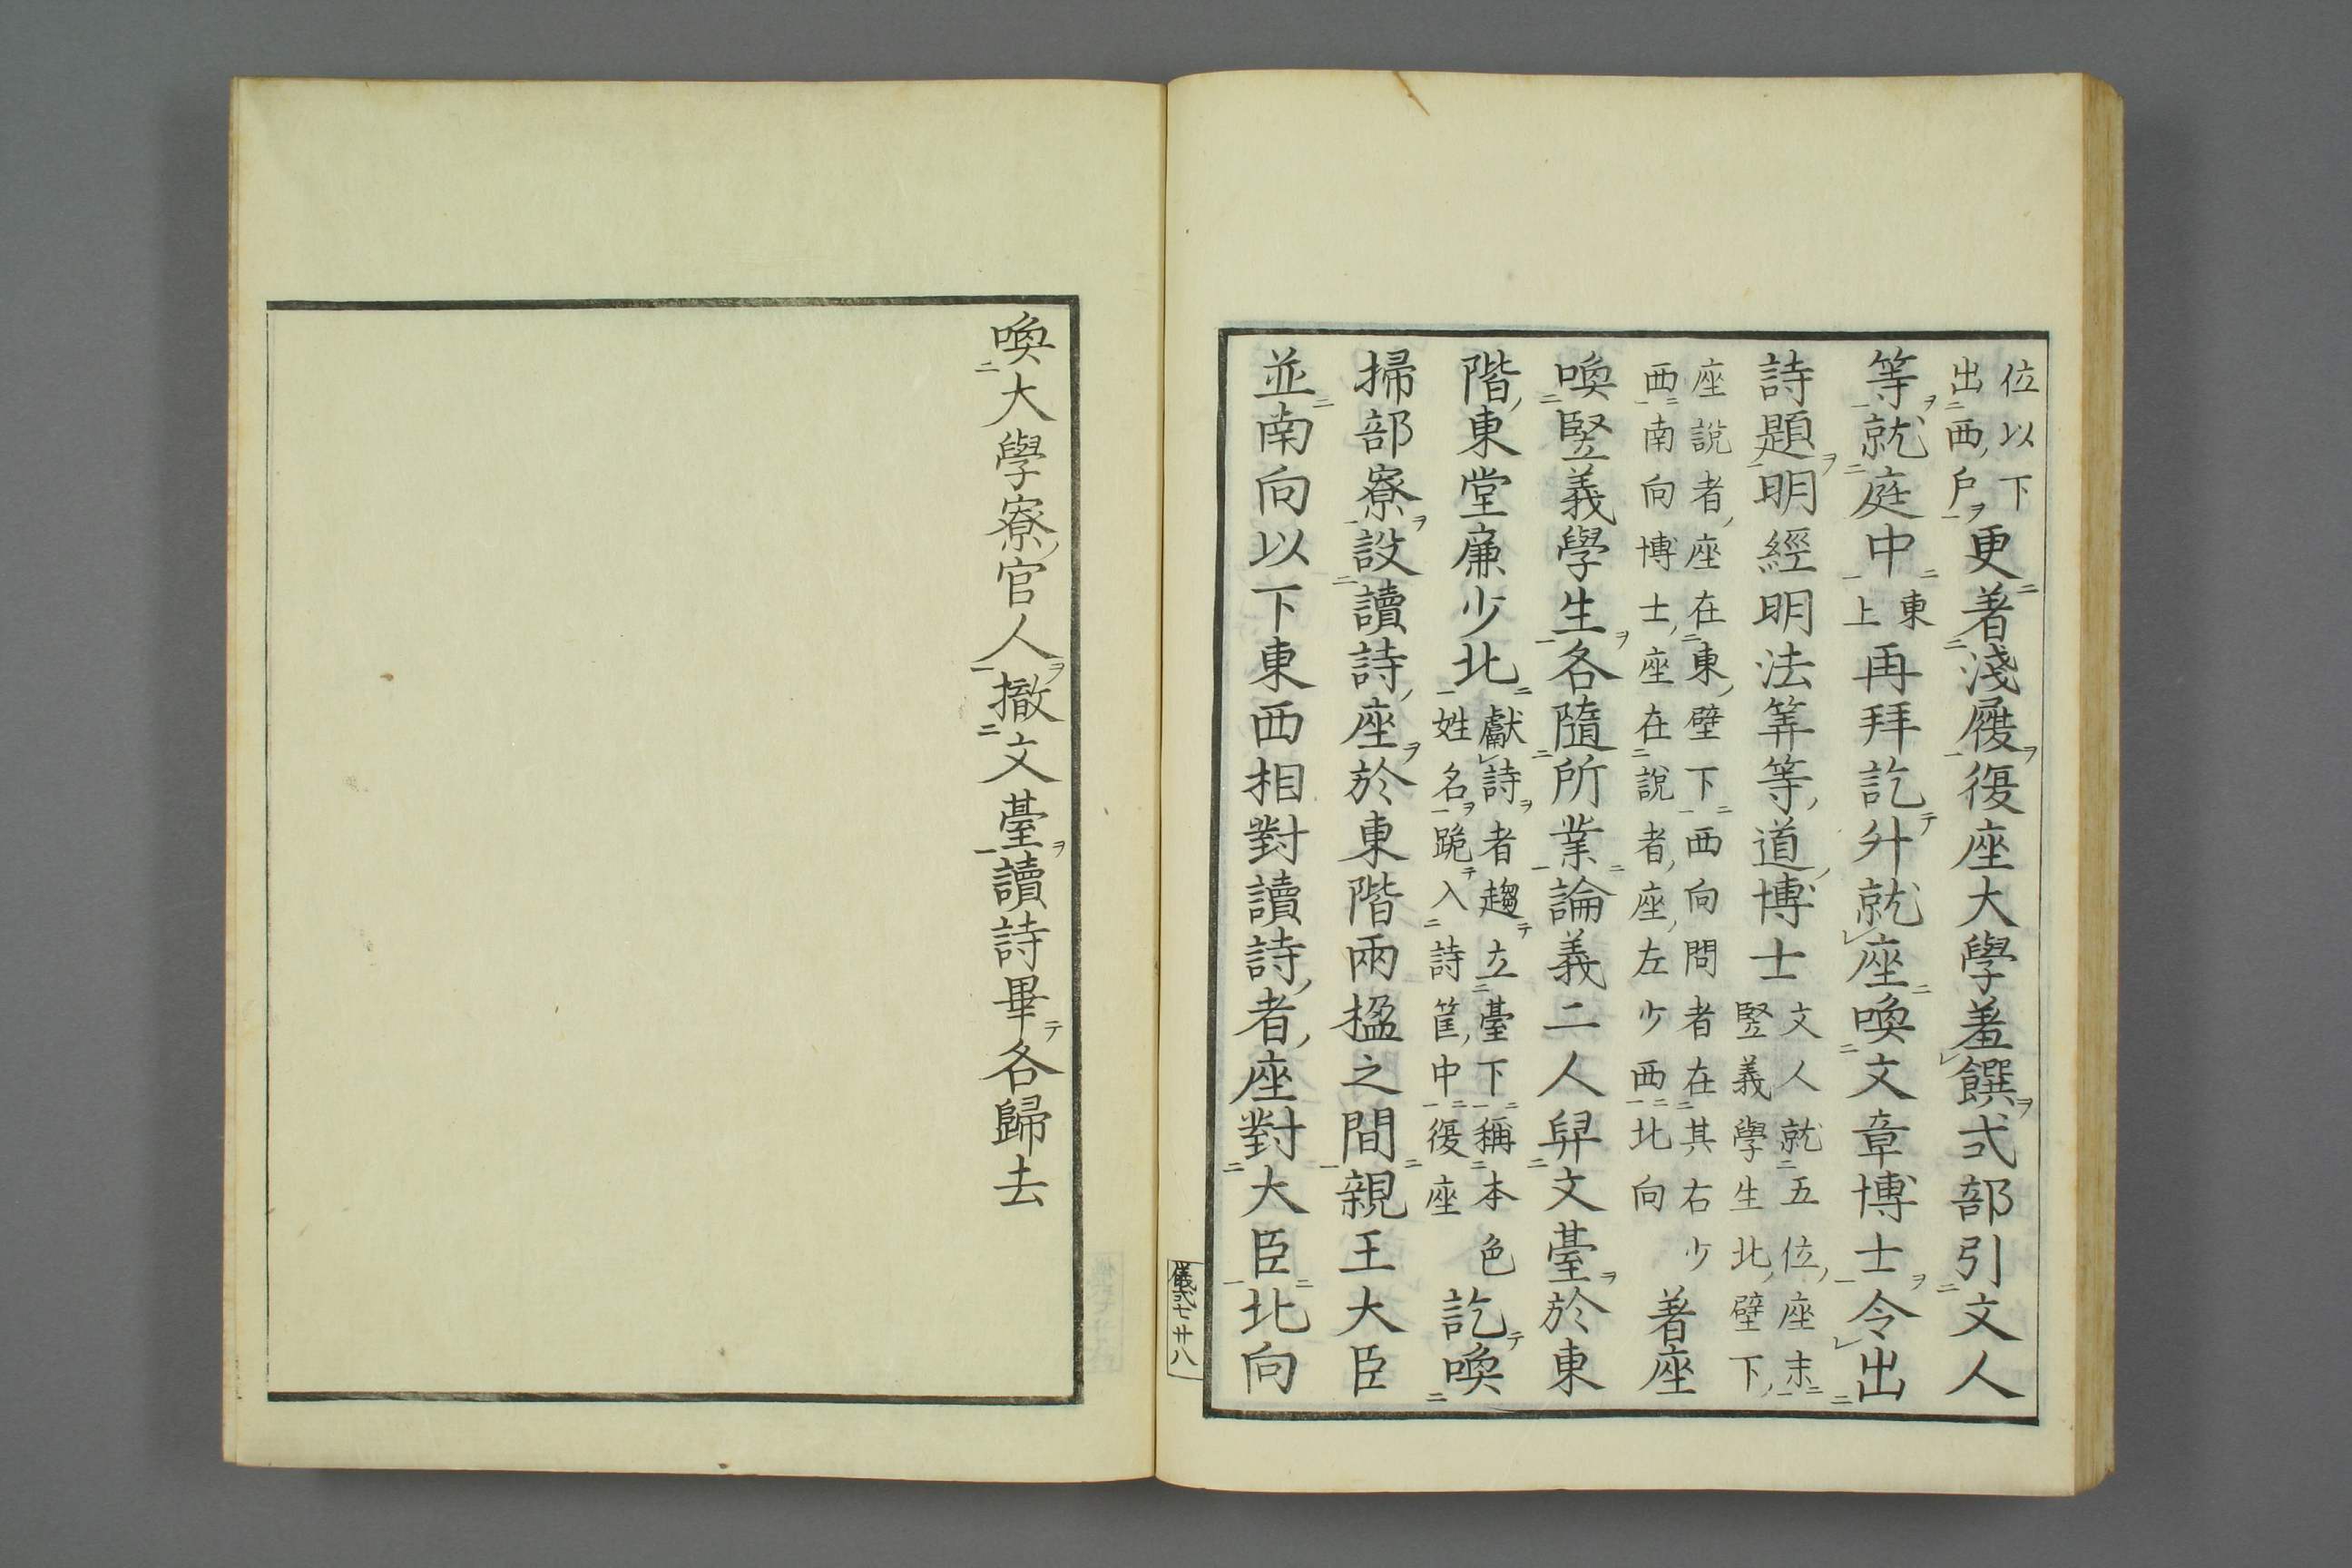 位以下出西戸更著淺履復座大學羞饌式部引文人
等就庭中東上再拜訖升就座喚文章博士令出
詩題明經明法筭等道博士文人就五位座末竪義學生北壁下
座說者座在東壁下西向問者在其右少西南向博士座在說者座左少西北向著座
喚竪義學生各隨所業論義二人舁文臺於東
階東堂廉少北獻詩者趨立臺下稱本色姓名跪入詩筐中復座訖喚
掃部寮設讀詩座於東階兩楹之間親王大臣
並南向以下東西相對讀詩者座對大臣北向
儀式七 廿八
喚大學寮官人撤文臺讀詩畢各歸去